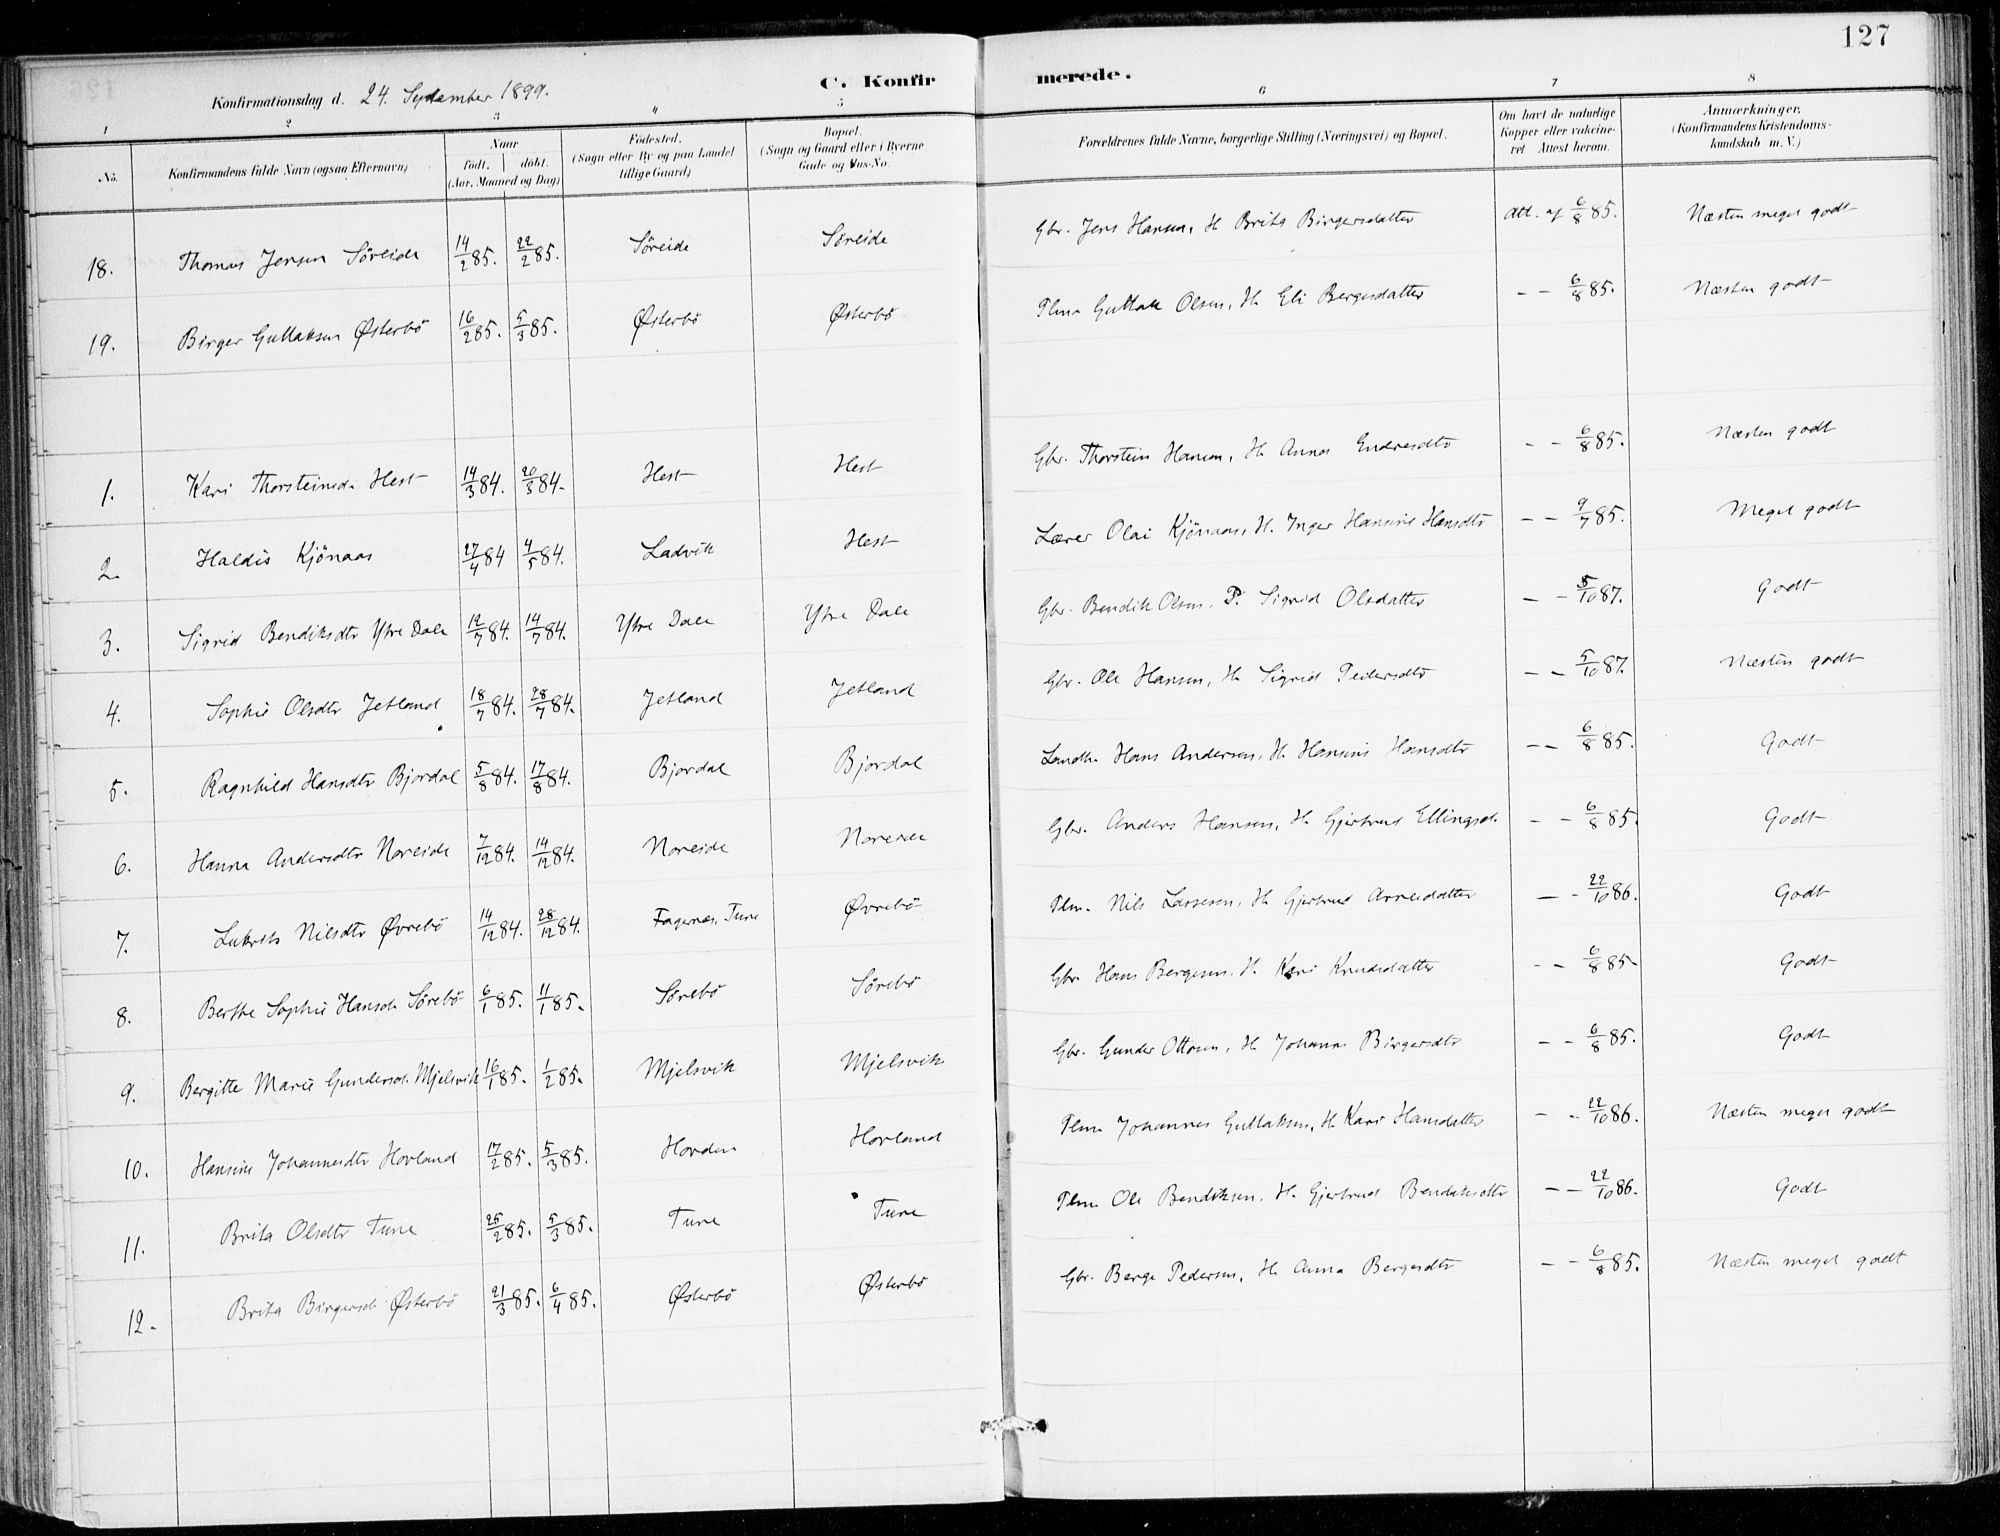 127
Konfirmationsdag d. 24. September 1899.
C. Konfirmerede.
1 2 3 4 5 6 7 8
No. Konfirmandens fulde Navn (ogsaa Efternavn) Naar födt. döbt. (Aar, Maaned og Dag) Födested. (Sogn eller By og paa Landet tillige Gaard) Bopæl. (Sogn og Gaard eller i Byerne Gade og Hus-No. Forældrenes fulde Navne, borgerlige Stilling (Næringsvei) og Bopæl. Om havt de naturlige Kopper eller vakcineret Attest herom. Anmærkninger. (Konfirmandens Kristendomskundskab m. V.)
18. Thomas Jensen Söreide 14/2 85. 22/2 85. Söreide Söreide Gbr. Jens Hansen, H. Brita Birgersdatter Att. af 6/8 85. Næsten meget godt
19. Birger Guttaksen Østerbö 16/2 85. 5/3 85. Østerbö Østerbö Plm. Guttak Olsen, H. Eli Bergesdatter - - 6/8 85. Næsten godt
1. Kari Thorsteinsd. Hest 14/3 84. 20/3 84. Hest Hest Gbr. Thorstein Hansen, H. Anna Endresdtr - - 6/8 85. Næsten godt
2. Haldis Kjönaas 27/4 84 4/5 84. Ladvik Hest Lærer Olai Kjönaas, H. Inger Hansine Hansdtr - - 9/7 85. Meget godt
3. Sigrid Bendiksdtr Ytre Dale 12/7 84. 14/7 84. Ytre Dale Ytre Dale Gbr. Bendik Olsen, P. Sigrid Olsdatter - - 5/10 87. Godt
4. Sophie Olsdtr Jetland 18/7 84. 28/7 84. Jetland Jetland Gbr. Ole Hansen, H. Sigrid Pedersdtr - - 5/10 87. Næsten godt
5. Ragnhild Hansdtr Bjordal 5/8 84. 17/8 84. Bjordal Bjordal Landh. Hans Andersen, H. Hansine Hansdtr - - 6/8 85. Godt
6. Hanna Andersdtr Noreide 7/12 84. 14/12 84. Noreide Noreide Gbr. Anders Hansen, H. Gjertrud Ellingsd. - - 6/8 85. Godt
7. Nilsdtr Øvrebö 14/12 84. 28/12 84. Fagernes, Tune Øvrebö Plm. Nils Larsesen, H. Gjertrud Arnesdatter - - 22/10 86. Godt
8. Berthe Sophie Hansd. Sörebö 6/1 85. 11/1 85. Sörebö Sörebö Gbr. Hans Bergesen, H. Kari Knudsdatter - - 6/8 85. Godt
9. Bergitte Marie Gundersd. Mjelsvik 16/1 85. 1/2 85. Mjelsvik Mjelsvik Gbr. Gunder Ottosen, H. Johanna Birgersdtr - - 6/8 85. Godt
10. Hansine Johannesdtr Hovland 17/2 85. 5/3 85. Hovden Hovland Plm. Johannes Guttaksen, H. Kari Hansdatter - - 22/10 86. Næsten meget godt
11. Brita Olsdtr Tune 25/2 85. 5/3 85. Tune Tune Plm. Ole Bendiksen, H. Gjertrud Bendiksdtr - - 22/10 86. Godt
12. Brita Birgersd. Østerbö 21/3 85. 6/4 85. Østerbö Østerbö Gbr. Berge Pedersen, H. Anna Bergesdtr - - 6/8 85. Næsten meget godt